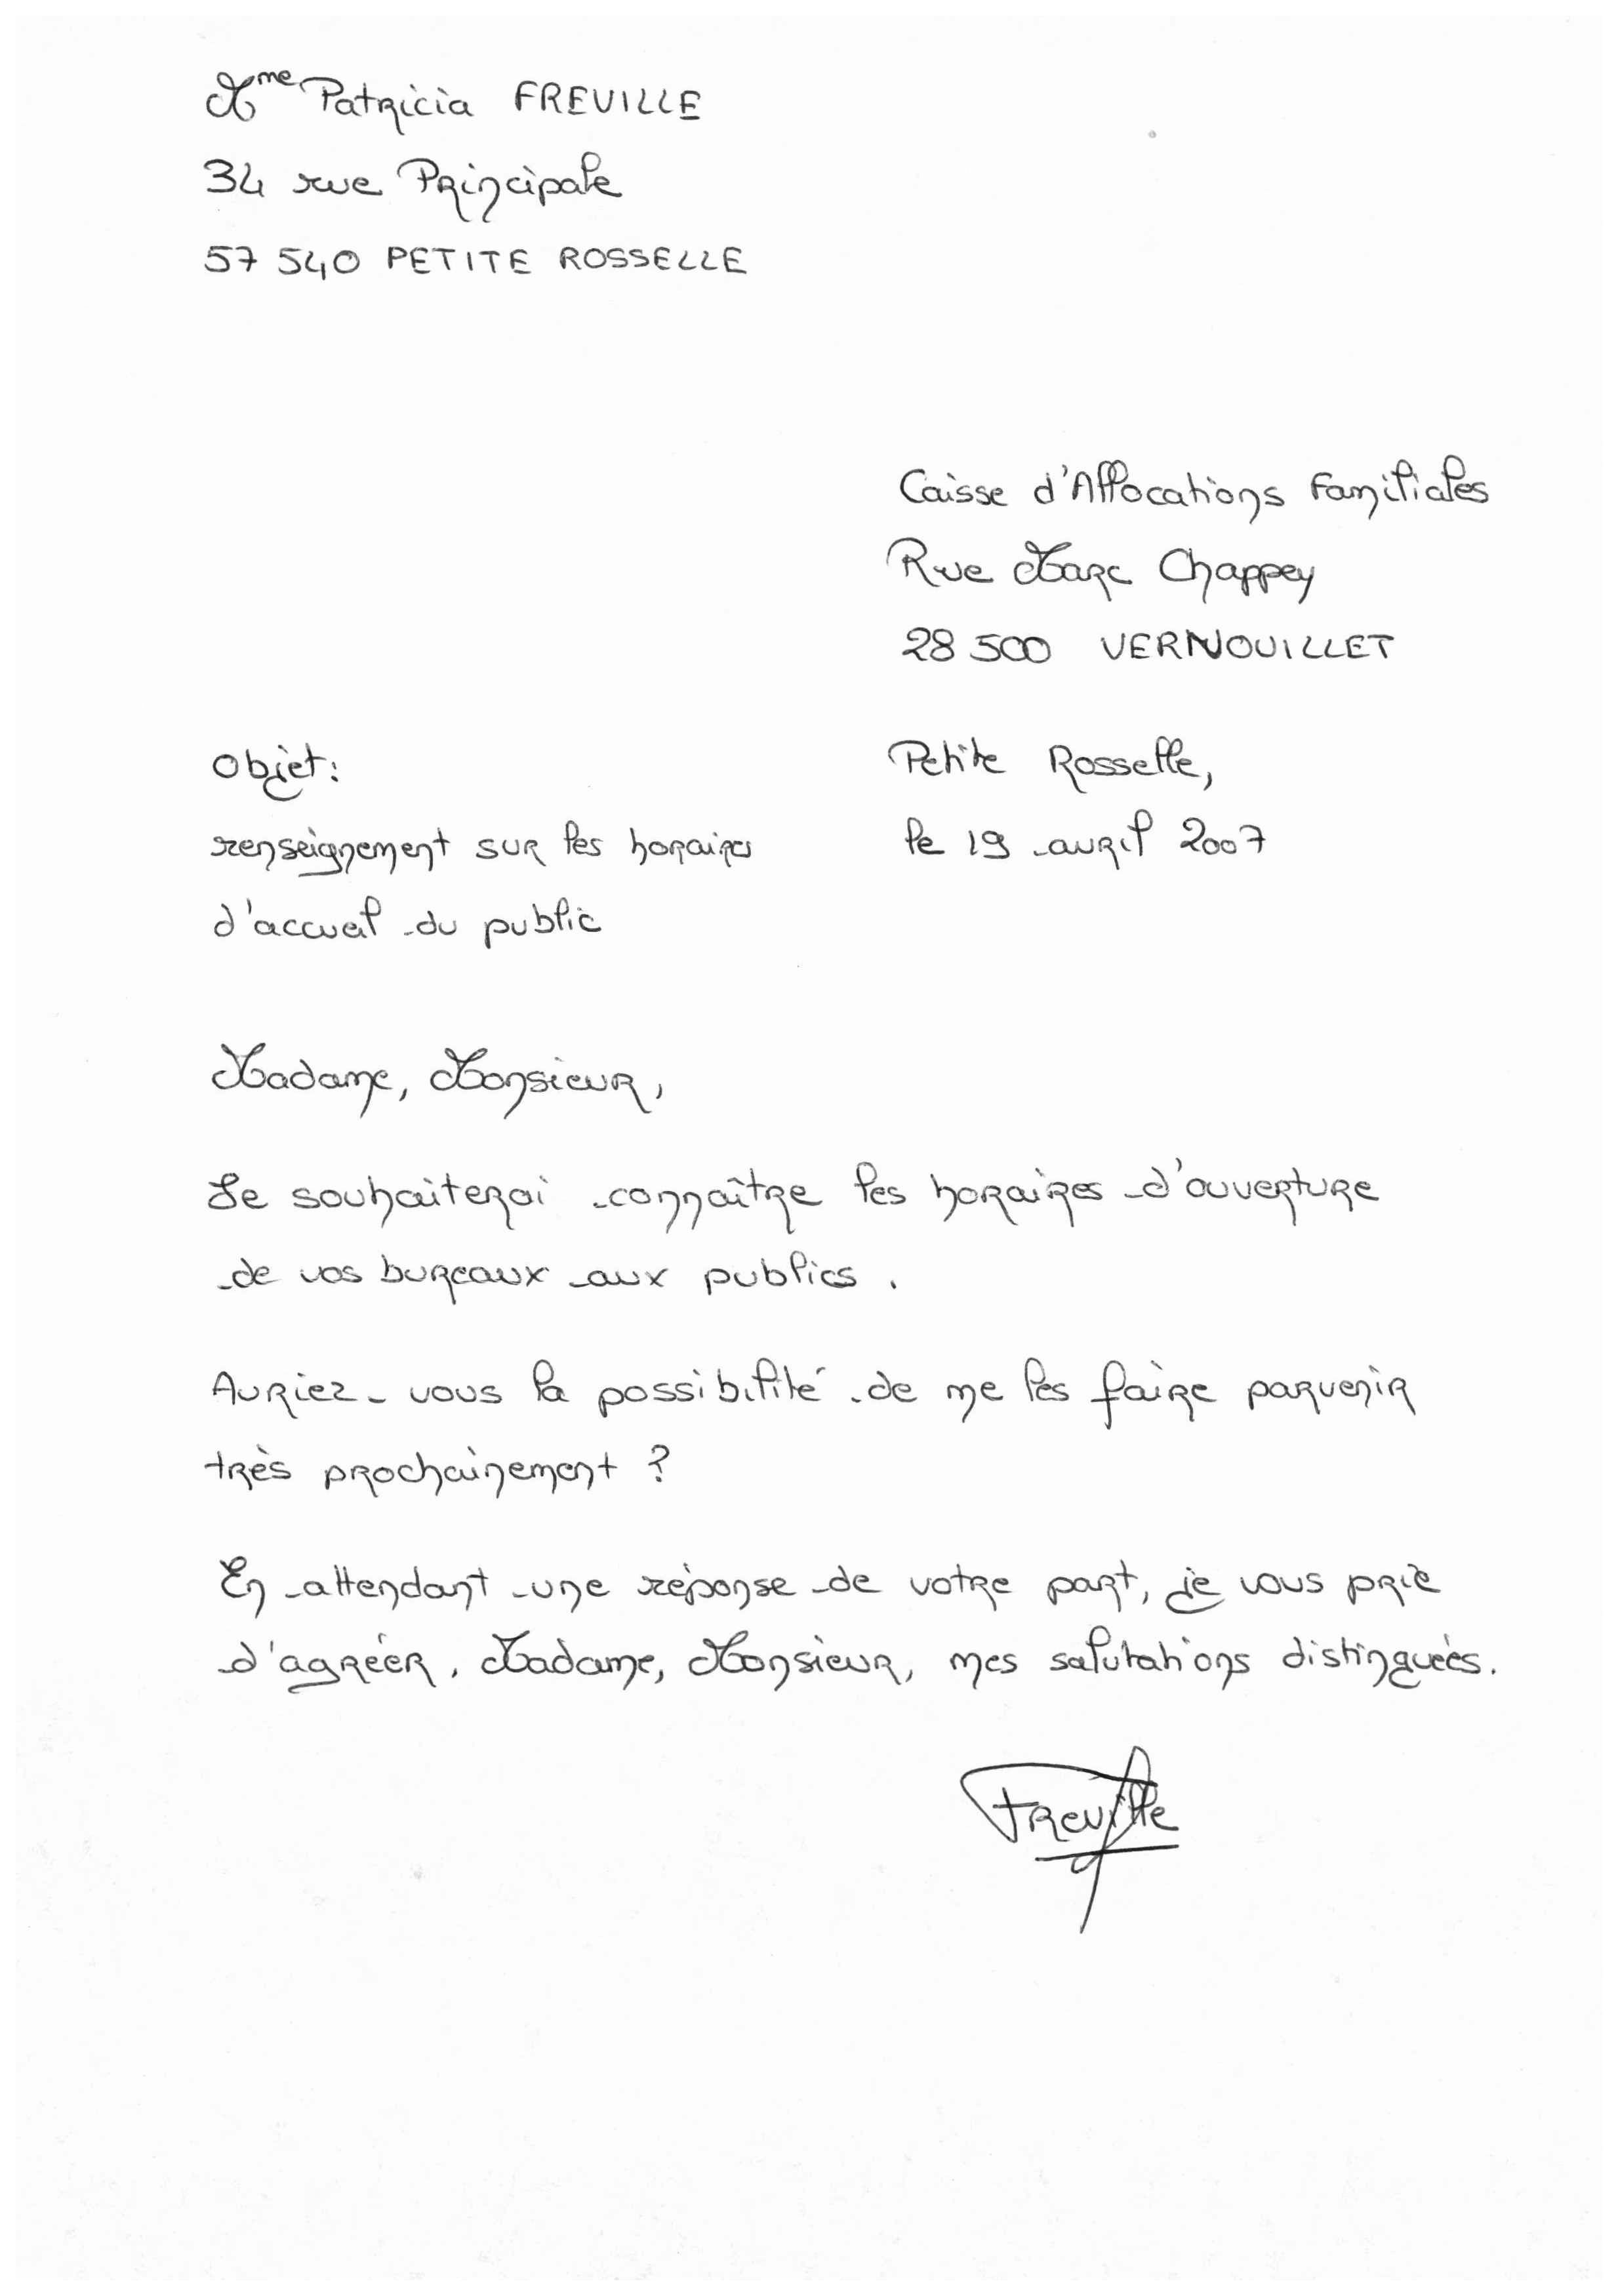 Mme Patricia FREVILLE
34 rue Principale
57 540 PETITE ROSSELLE
Caisse d'Allocations Familiales
Rue Marc Chappey
28 500 VERNOUILLET
Petite Rosselle,
le 19 avril 2007
Objet:
renseignement sur les horaires
d'accueil du public
Madame, Monsieur,
Je souhaiterai connaître les horaires d'ouverture
de vos bureaux aux publics.
Auriez-vous la possibilité de me les faire parvenir
très prochainement ?
En attendant une réponse de votre part, je vous prie
d'agréer, Madame, Monsieur, mes salutations distinguées.
Freville